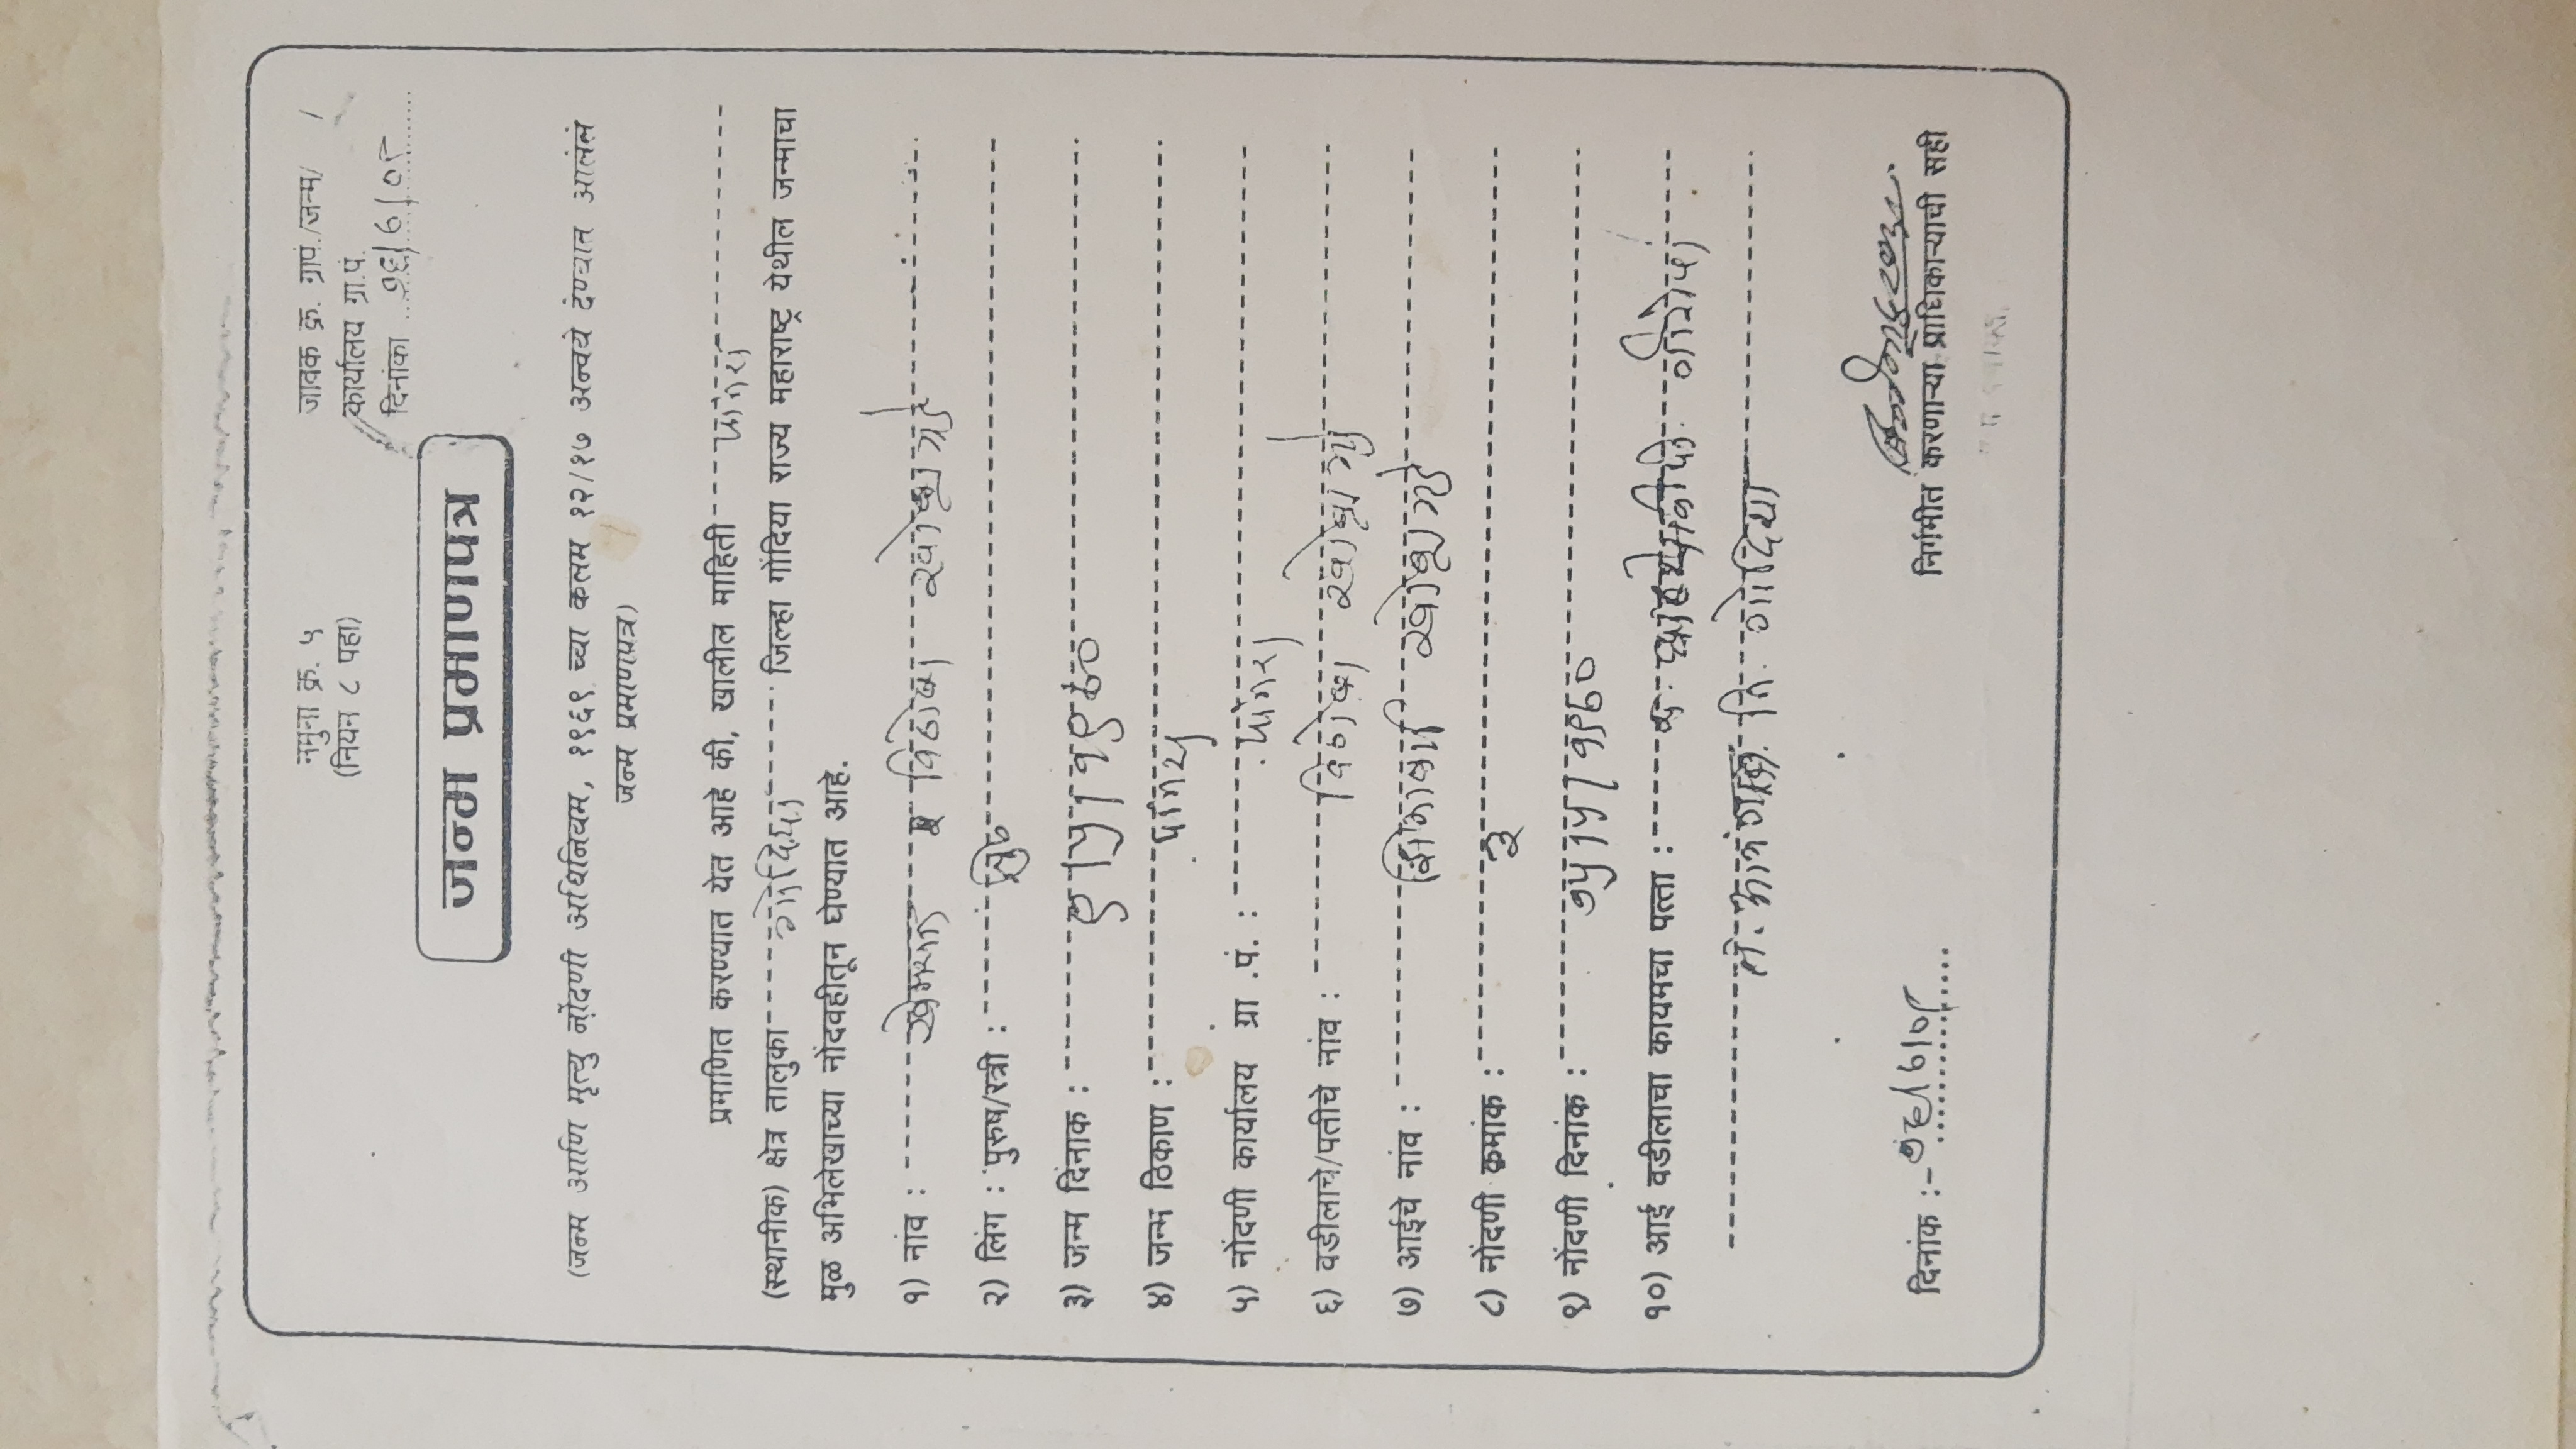 नमुना क्र. ५
(नियन ८ पहा)
जावक क्र. ग्रापं./जन्म/ /
कार्यालय ग्रा.पं.
दिनांका
जन्म प्रमाणपत्र
(जन्म आणि मृत्यु नोंदणी अधिनियम, १९६९ च्या कलम १२/१७ अन्वये देण्यात आलेले
जन्म प्रमाणपत्र)
प्रमाणित करण्यात येत आहे की, खालील माहिती पांगरा
(स्थानीक) क्षेत्र तालुका गोंदिया जिल्हा गोंदिया राज्य महाराष्ट्र येथील जन्माचा
मुळ अभिलेखाच्या नोंदवहीतून घेण्यात आहे.
१) नांव : विठोबा खोब्रागडे
२) लिंग : पुरुष/स्त्री :
३) जन्म दिंनाक : ९/५/१९८०
४) जन्म ठिकाण : पांगरा
५) नोंदणी कार्यालय ग्रा .पं. : पांगरा
६) वडीलाचे/पतीचे नांव : विठोबा खोब्रागडे
७) आईचे नांव : खोब्रागडे
८) नोंदणी क्रमांक : ३
९) नोंदणी दिनांक : १५/५/१९८०
१०) आई वडीलाचा कायमचा पत्ता :
जि. गोंदिया
दिनांक :-
निर्गमीत करणाऱ्या प्राधिकाऱ्याची सही